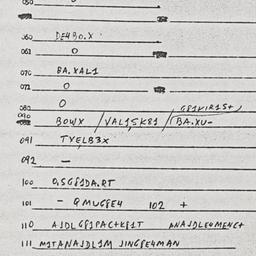 060 DE4BO.X
061 0
070 BA.XAL1
072 0
080 0
BOWX / VAL1,SK81 / BA.XU-
091 TYELB3X
092 -
100 0,SG81DA.RT
101 - QMUG8E4 102 +
110 AJDLG81PAC+K81T ANAJDLE4MENC+
111 M1TANAJDL1M JINGBE4MAN